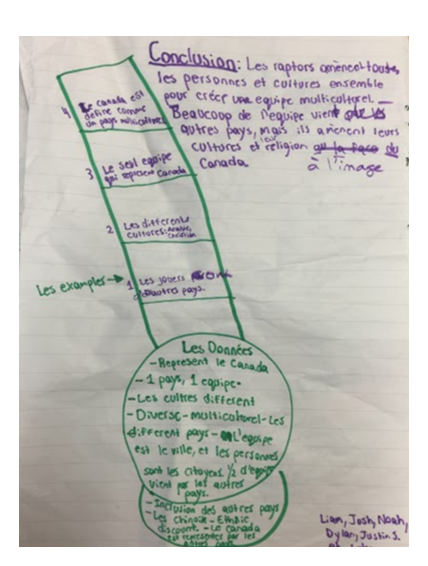 Conclusion: Les raptors amènent toute,
les personnes et cultures ensemble
pour créer une equipe multiculturel.
Beaucoup de l'equipe vient
autres pays, mais ils amènent leurs
cultures et leur religion au la face du
Canada à l'image
4 Le canada est
définé comme
un pays multiculturel
3 Le seul equipe
qui represent Canada
2 Les différents
cultures: Arabic,
Christian
Les examples →
1 Les jouers
d'autres pays.
Les Données
- Represent le Canada
- 1 pays, 1 equipe.
- Les cultres different
- Diverse - multiculturel - Les
different pays - L'equipe
est le ville, et les personnes
sont les citoyens. 1/2 d'equipe
vient par les autres
pays.
- Inclusion des autres pays
- Les chinois - Ethnic
discounts - Le canada
est représenter par les
autres pays
Liam, Josh, Noah,
Dylan, Justin S.